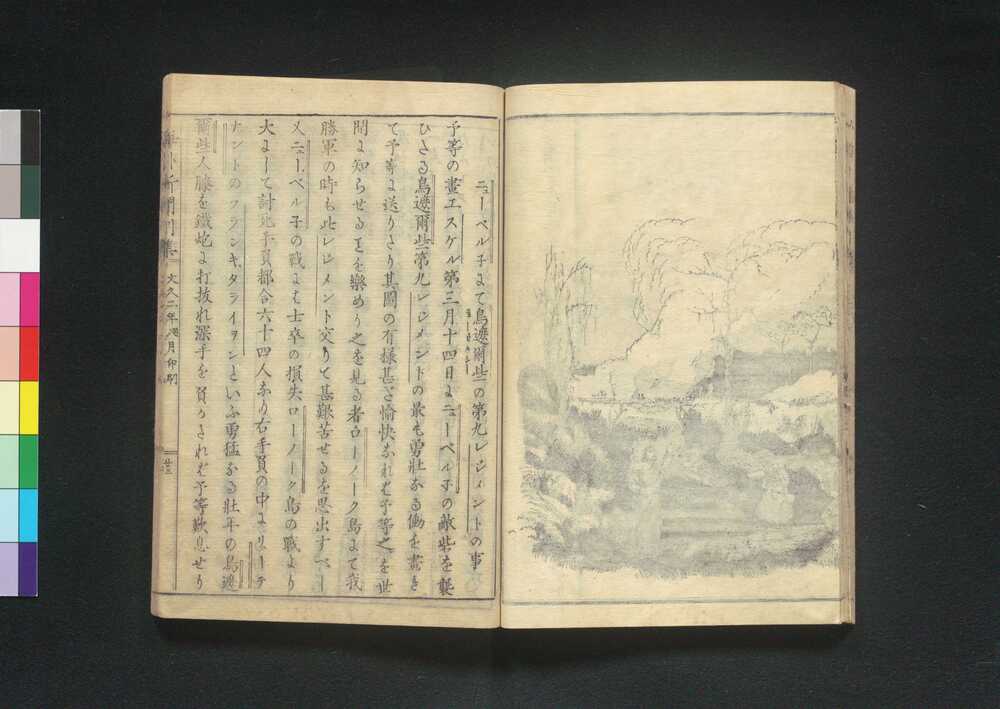 ニューベル子よて鳥遮爾些の第九レジメントの事
予等の畫工スケル第三月十四日よニューベル子の敵柴を襲
ひさる鳥遮爾些第九レジメントの最も勇壯なる働を畫き
て予等よ送りさり其圖の有様甚ざ愉快なれば予等之を世
間よ知らせるを樂めり之を見る者ローノーク島よて我
勝軍の時も此レジメント交りて甚艱苦せるを思出すべー
又ニューベル子の戰よは士卒の損失ローノーク島の戰より
大よーて討死手負都合六十四人なり右手負の中よリューテ
ナントのフランキタライヲンといふ勇猛なる壯年の鳥遮
爾些人膝を鐵炮よ打抜れ深手を負うされば予等歎息せり
海外新聞別集
文久二年
月印刷
廿三